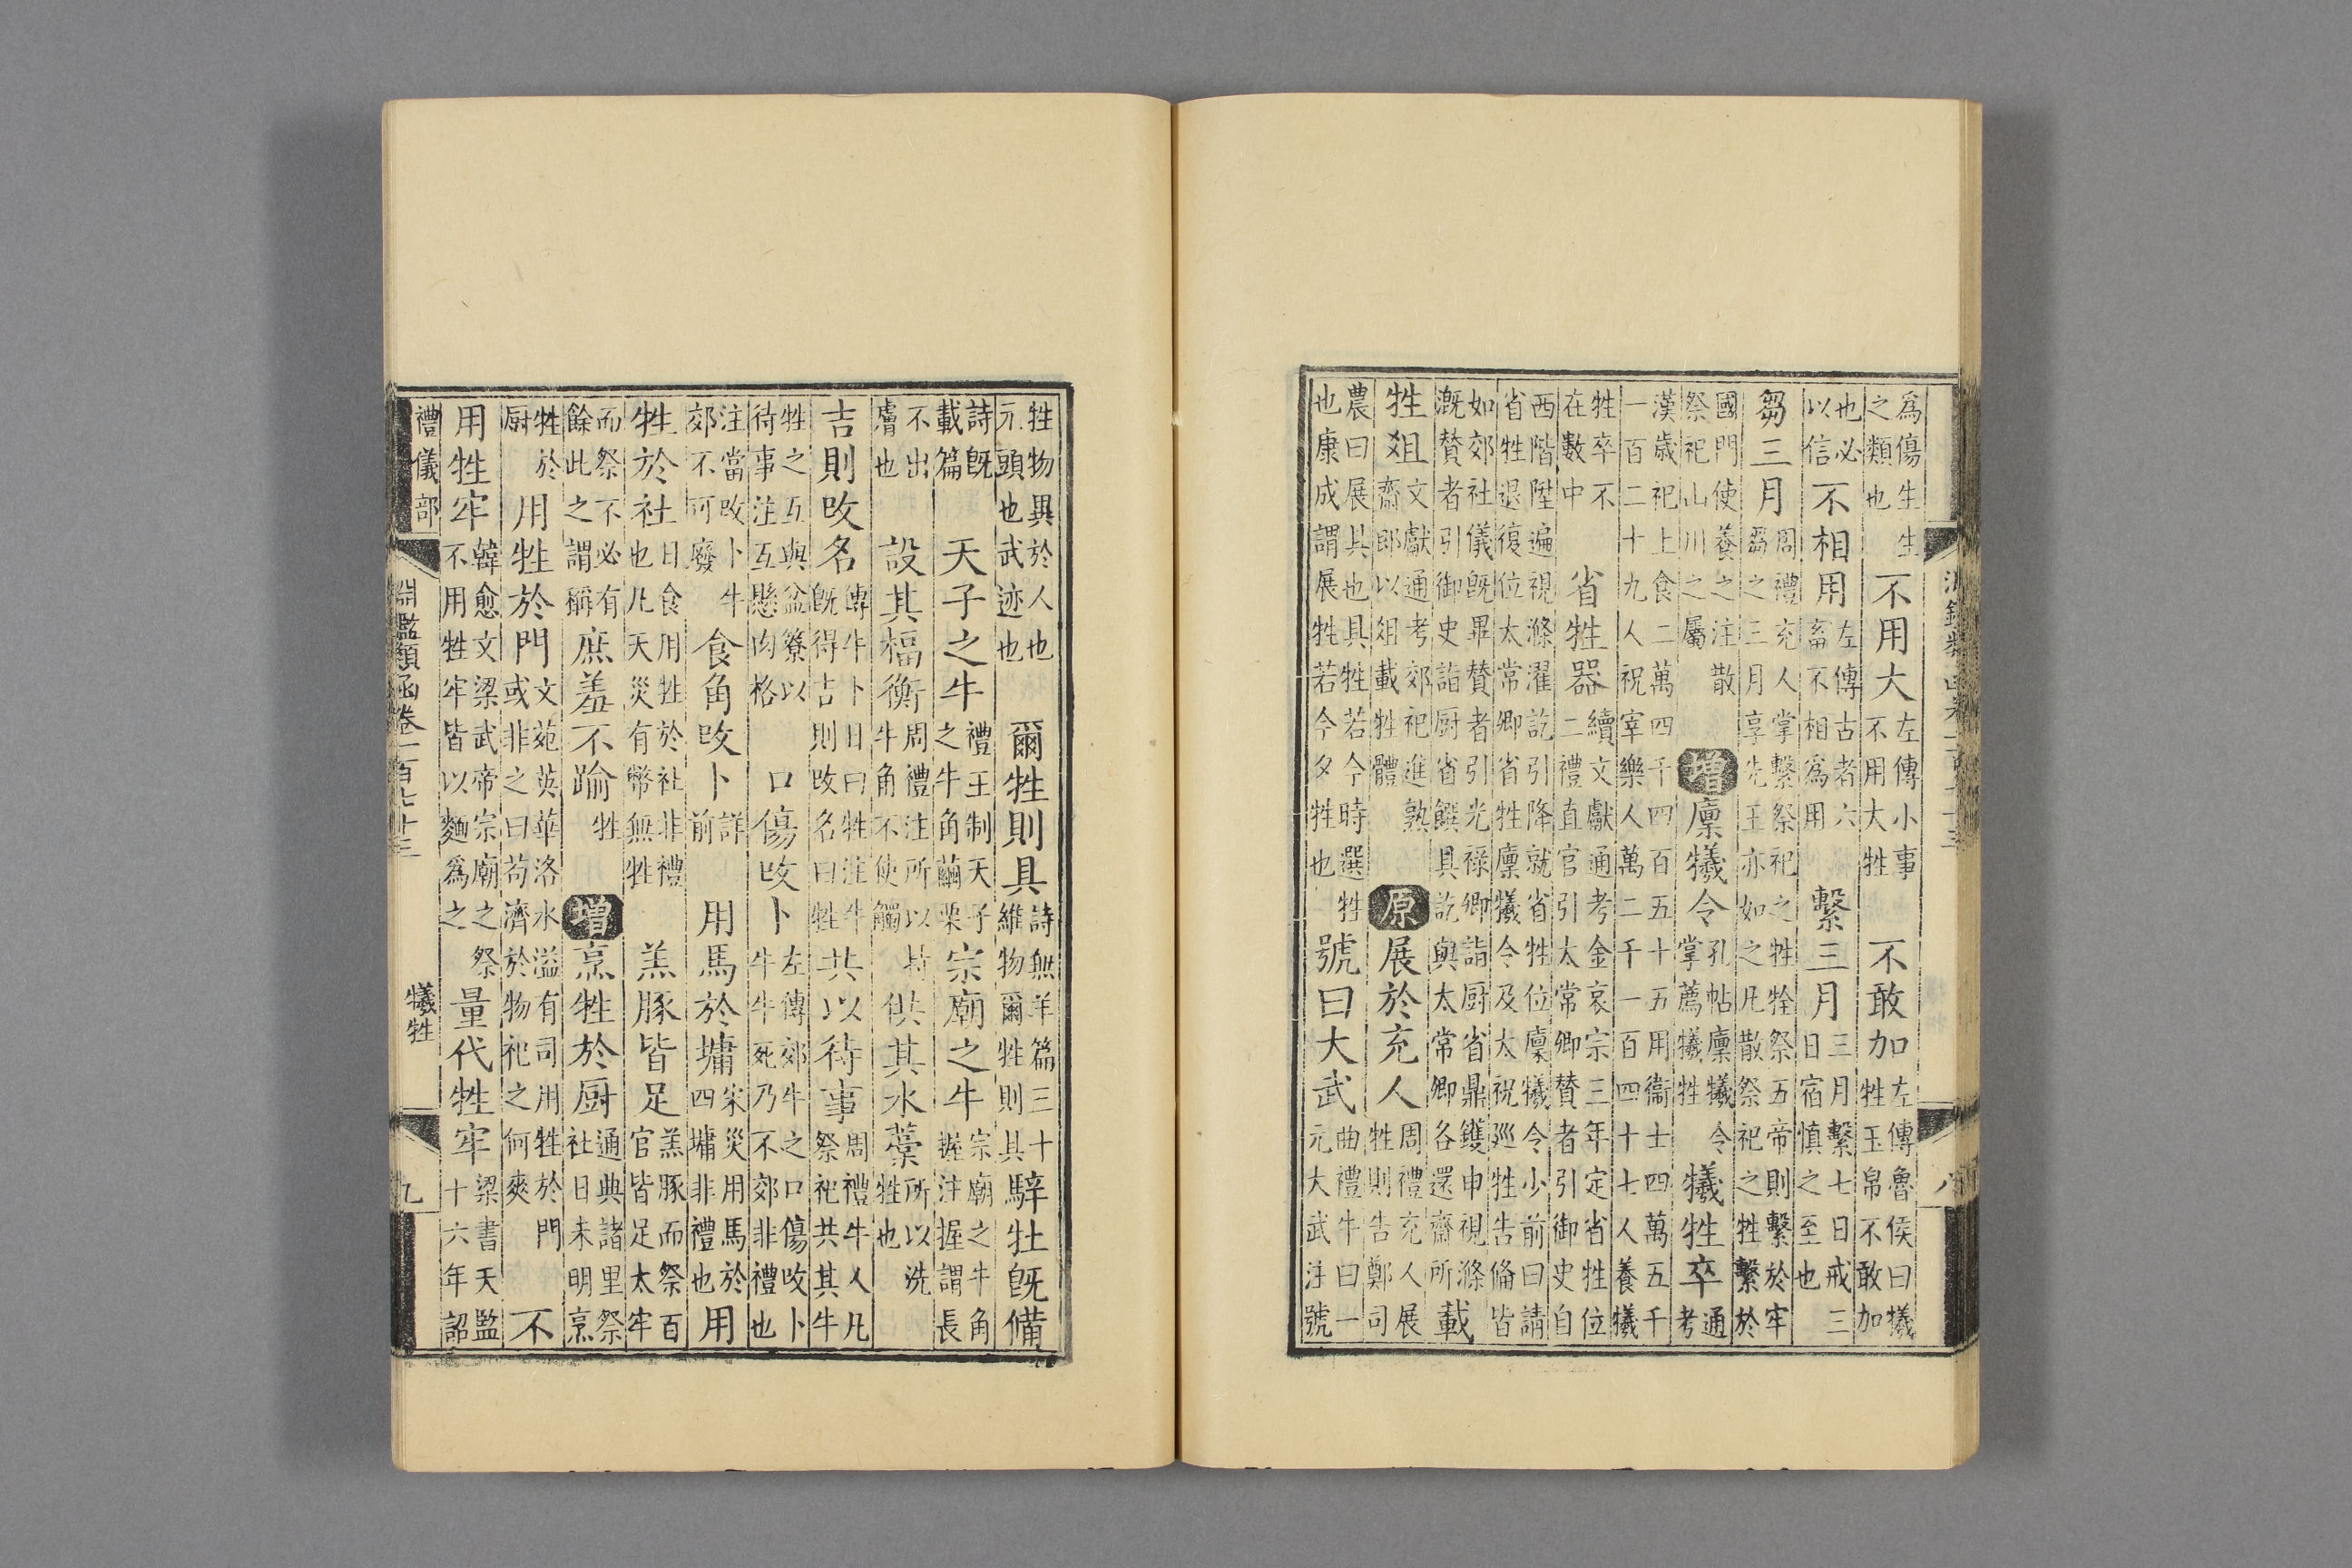 為傷生生之類也不用大左傳小事不用大牲不敢加左傳魯侯曰犧牲玉帛不敢加
也必以信不相用左傳古者六畜不相為用繫三月三月繫七日戒三日宿慎之至也
芻三月周禮充人掌繫祭祀之牲牷祭五帝則繫於牢芻之三月享先王亦如之凡散祭祀之牲繫於
國門使養之注散祭祀山川之屬增廩犧令孔帖廩犧令掌薦犧牲犧牲卒通考
漢歲祀上食二萬四千四百五十五用衞士四萬五千一百二十九人祝宰樂人萬二千一百四十七人養犧
牲卒不在數中省牲器續文獻通考金哀宗三年定省牲位二禮直官引太常卿贊者引御史自
西階陞遍視滌濯訖引降就省牲位廩犧令少前曰請省牲退復位太常卿省牲廩犧令及太祝廵牲告俻皆
如郊社儀旣畢贊者引光祿卿詣厨省鼎鑊申視滌溉贊者引御史詣厨省饌具訖與太常卿各還齋所載
牲俎文獻通考郊祀進熟齋郎以俎載牲體原展於充人周禮充人展牲則告鄭司
農曰展具也具牲若今時選牲也康成謂展牲若今夕牲也號曰大武曲禮牛曰一元大武注號
八
牲物異於人也元頭也武迹也爾牲則具詩無羊篇三十維物爾牲則具騂牡旣備
詩旣載篇天子之牛禮王制天子之牛角繭栗宗廟之牛宗廟之牛角握注握謂長
不出膚也設其楅衡周禮注所以持牛角不使觸供其水藁所以洗牲也
吉則改名傳牛卜日曰牲注牛旣得吉則改名曰牲共以待事周禮牛人凡祭祀共其牛
牲之互與盆簝以待事注互懸肉格口傷改卜左傳郊牛之口傷改卜牛牛死乃不郊非禮也
注當改卜牛郊不可廢食角改卜詳前用馬於墉宋災用馬於四墉非禮也用
牲於社日食用牲於社非禮也凡天災有幣無牲羔豚皆足羔豚而祭百官皆足太牢
而祭不必有餘此之謂稱庶羞不踰牲增烹牲於厨通典諸里祭社日未明烹
牲於厨用牲於門文苑英華洛水溢有司用牲於門或非之曰苟濟於物祀之何爽不
用牲牢韓愈文梁武帝宗廟之祭不用牲牢皆以麵為之量代牲牢梁書天監十六年詔
禮儀部 淵鑑類函卷一百七十三 犧牲 九